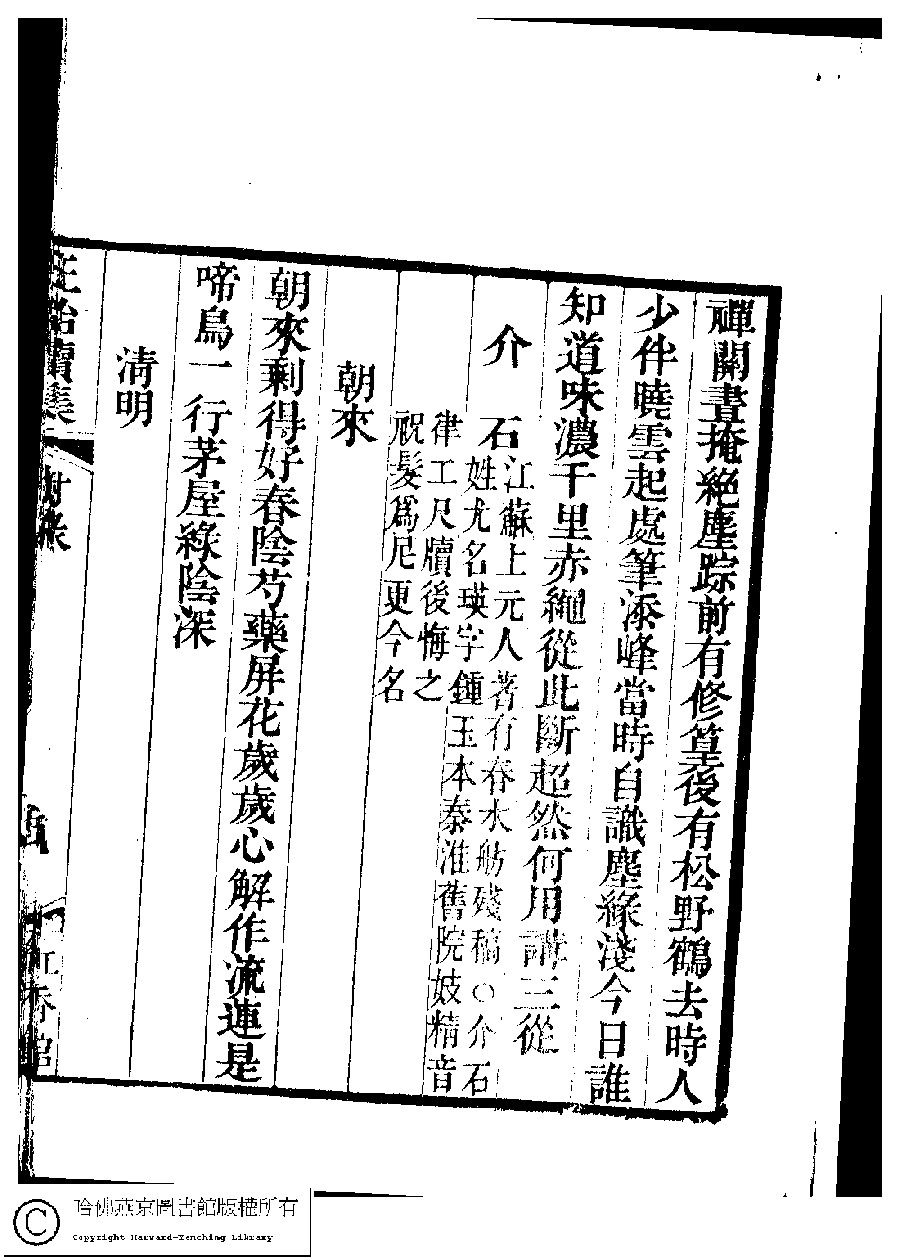 禪關晝掩絕塵踪前有修篁後有松野鶴去時人
少伴曉雲起處筆添峰當時自識塵緣淺今日誰
知道味濃千里赤繩從此斷超然何用講三從
介石
江蘇上元人著有春水舫殘稿○介石
姓尤名瑛字鍾玉本秦淮舊院妓精音
律工尺牘後悔之
祝髮爲尼更今名
朝來
朝來剩得好春陰芍藥屏花歲歲心解作流連是
啼鳥一行茅屋綠陰深
清明
正始續集
附錄
紅香館
哈佛燕京圖書館版權所有
Copyright Harvard-Yenching Library